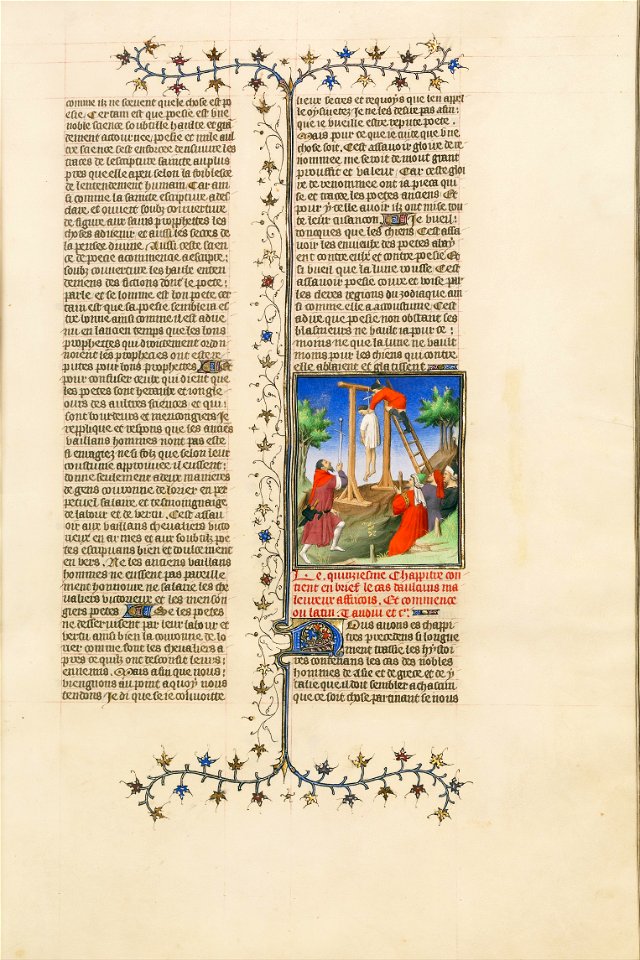 comme ilz ne scevent quele chose est po
esie. Certain est que poesie est une
noble science soubtille haulte et gra
dement atournee, poesie et nule aul
tre science sest enforcee densuivre les
traces de lescripture saincte au plus
pres que elle a peu selon la foiblesse
de lentendement humain. Car ain
si comme la saincte escripture a des
claire et ouvert soubz couverture
de figure aux sains prophettes les
choses advenir et aussi les secres de
la pensee divine. Aussi ceste scien
ce de poesie a commencie a escripre
soubz couverture les haulx enten
demens des fictions dont le poete
parle et se lomme est bon poete cer
tain est que sa poesie semblera es
tre bonne ainsi comme il est adve
nu en lancien temps que les bons
prophettes qui droictement ordon
noient les prophecies ont este re
putes pour bons prophettes Et
pour confuser ceulx qui dient que
les poetes sont heraulx et iongle
ours des aultres sciences et qui
sont boureurs et mencongiers Je
replique et respons que les anciens
vaillans hommes nont pas este
si enragiez ne si folz que selon leur
coustume approuvee ilz eussent
donne seulement a deux manieres
de gens couronne de lorier en per
petuel salaire et tesmoignaige
de labour et de vertu. Cest assa
voir aux vaillans chevaliers victo
rieux en armes et aux soubtilz po
etes escripvans bien et doulcement
en vers. Ne les anciens vaillans
hommes ne eussent pas pareille
ment honnoure ne salarie les che
valiers victorieux et les menson
giers poetes Se les poetes
ne desservissent par leur labour et
vertu aussi bien la couronne de lo
rier comme font les chevaliers a
pres ce quilz ont desconfit leurs
ennemis. Mais afin que nous
viengnons au point a quoy nous
tendons Je di que se ie convoitte
lieux secres et requoys que len appel
le oysivetez Je ne les desire pas afin
que ie vueille estre repute poete.
Mais pour ce que ie cuide que une
chose soit. Cest assavoir gloire de re
nommee me seroit de mout grant
prouffit et valeur. Car ceste gloi
re de renommee ont ia pieca qui
se et tracee les poetes anciens. Et
pour ycelle avoir ilz ont mise tou
te leur cusancon Je vueil
doncques que les chiens Cest assa
voir les envieux des poetes abay
ent contre eulx et contre poesie Et
si vueil que la lune rousse Cest
assavoir poesie coure et voise par
les cleres regions du zodiaque ain
si comme elle a acoustume. Cest
adire que poesie non obstant ses
blasmeurs ne vault ia pour ce
moins ne que la lune ne vault
moins pour les chiens qui contre
elle abaient et glatissent
Le quinziesme Chappitre con
tient en brief le cas daulcuns ma
leureux affricois. Et commence
ou latin. Tandiu et cetera.
Nous avons es chappi
tres precedens si longue
ment traittie les hystoi
res contenans les cas des nobles
hommes de Asie et de grece et de y
talie que il doit sembler a chascun
que ce soit chose partinant se nous